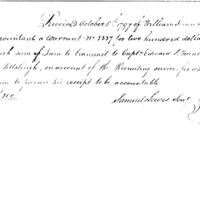 Received October 8th 1797 of William Simm
accountant a Warrant No. 2237 for two hundred dolla
which sum I am to transmit to Capt. Edward
Pittsburgh, on account of the Recruiting service, for wh
am to his receipt to be accountable.
Samuel Lewis Senr